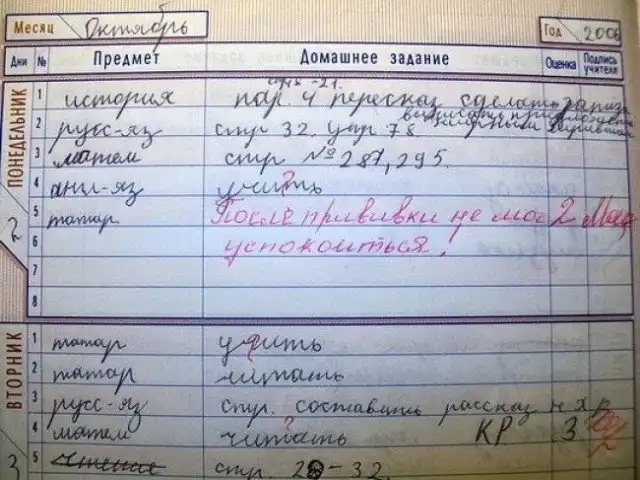 Месяц Октябрь Год 2006
Дни № Предмет Домашнее задание Оценка Подпись учителя
ПОНЕДЕЛЬНИК
2
стр -21.
1 история пар. 4 пересказ сделать
2 русс-яз стр 32. упр 78
3 матем стр № 287, 295.
4 англ-яз учить ?
5 татар. После прививки не мог 2
6 успокоиться!
7
8
ВТОРНИК
3
1 татар учить
2 татар читать
3 русс-яз стр. составить рассказ
4 матем читать ? КР 3
5 чтение стр. 28-32.